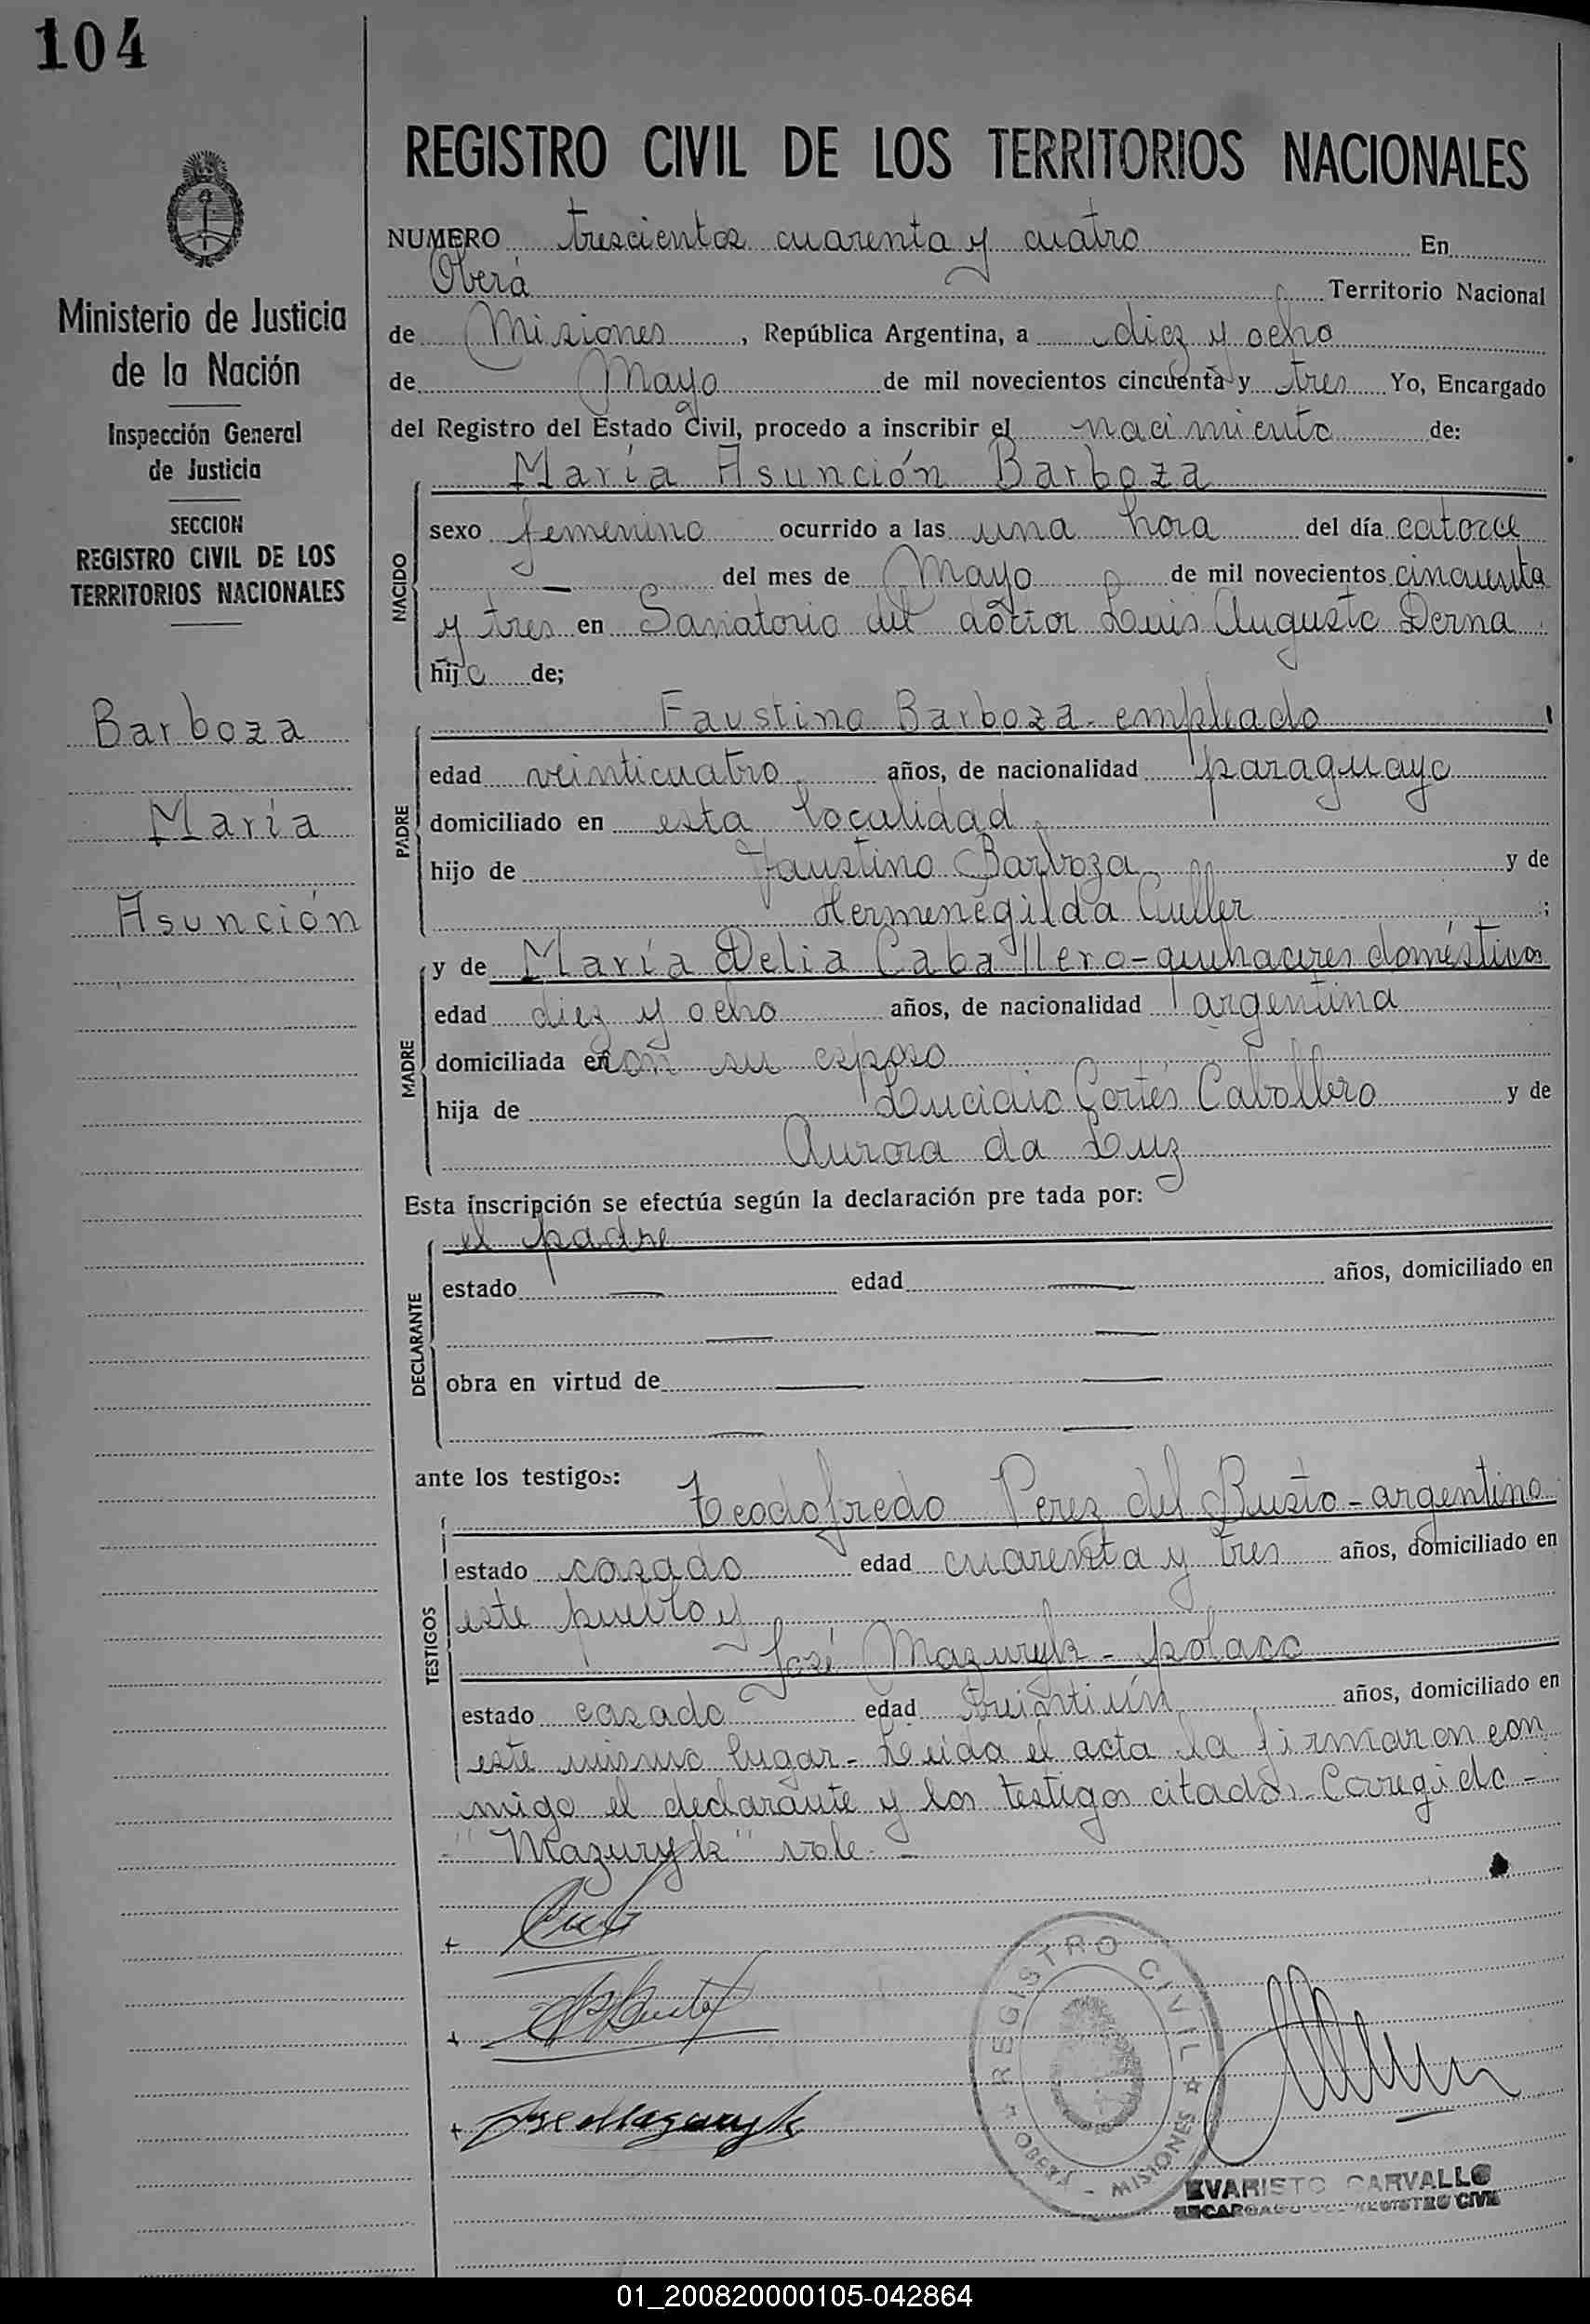 104
REGISTRO CIVIL DE LOS TERRITORIOS NACIONALES
Ministerio de Justicia
de la Nación
Inspección General
de Justicia
SECCION
REGISTRO CIVIL DE LOS
TERRITORIOS NACIONALES
Barboza
María
Asunción
NUMERO trescientos cuarenta y cuatro En
Oberá Territorio Nacional
de Misiones, República Argentina, a diez y ocho
de Mayo de mil novecientos cincuenta y tres Yo, Encargado
del Registro del Estado Civil, procedo a inscribir el nacimiento de:
NACIDO
María Asunción Barboza
sexo femenino ocurrido a las una hora del día catorce
— del mes de Mayo de mil novecientos cincuenta
y tres en Sanatorio del doctor Luis Augusto Derna
hija de;
PADRE
Faustino Barboza - empleado
edad veinticuatro años, de nacionalidad paraguayo
domiciliado en esta localidad
hijo de Faustino Barboza y de
Hermenegilda Culler;
MADRE
y de María Delia Caballero - quehaceres domésticos
edad diez y ocho años, de nacionalidad argentina
domiciliada en con su esposo
hija de Lucidio Cortés Caballero y de
Aurora da Luz
Esta inscripción se efectúa según la declaración pre tada por:
DECLARANTE
el padre
estado — edad — años, domiciliado en
— —
obra en virtud de — —
— —
ante los testigos:
TESTIGOS
Teodofredo Perez del Busto - argentino
estado casado edad cuarenta y tres años, domiciliado en
este pueblo y
José Mazuryk - polaco
estado casado edad treintiún años, domiciliado en
este mismo lugar - Leída el acta la firmaron con
migo el declarante y los testigos citados - Corregido -
- "Mazuryk" vale -
Jose Mazuryk
REGISTRO CIVIL
OBERA - MISIONES
EVARISTO CARVALLO
ENCARGADO DEL REGISTRO CIVIL
01_200820000105-042864